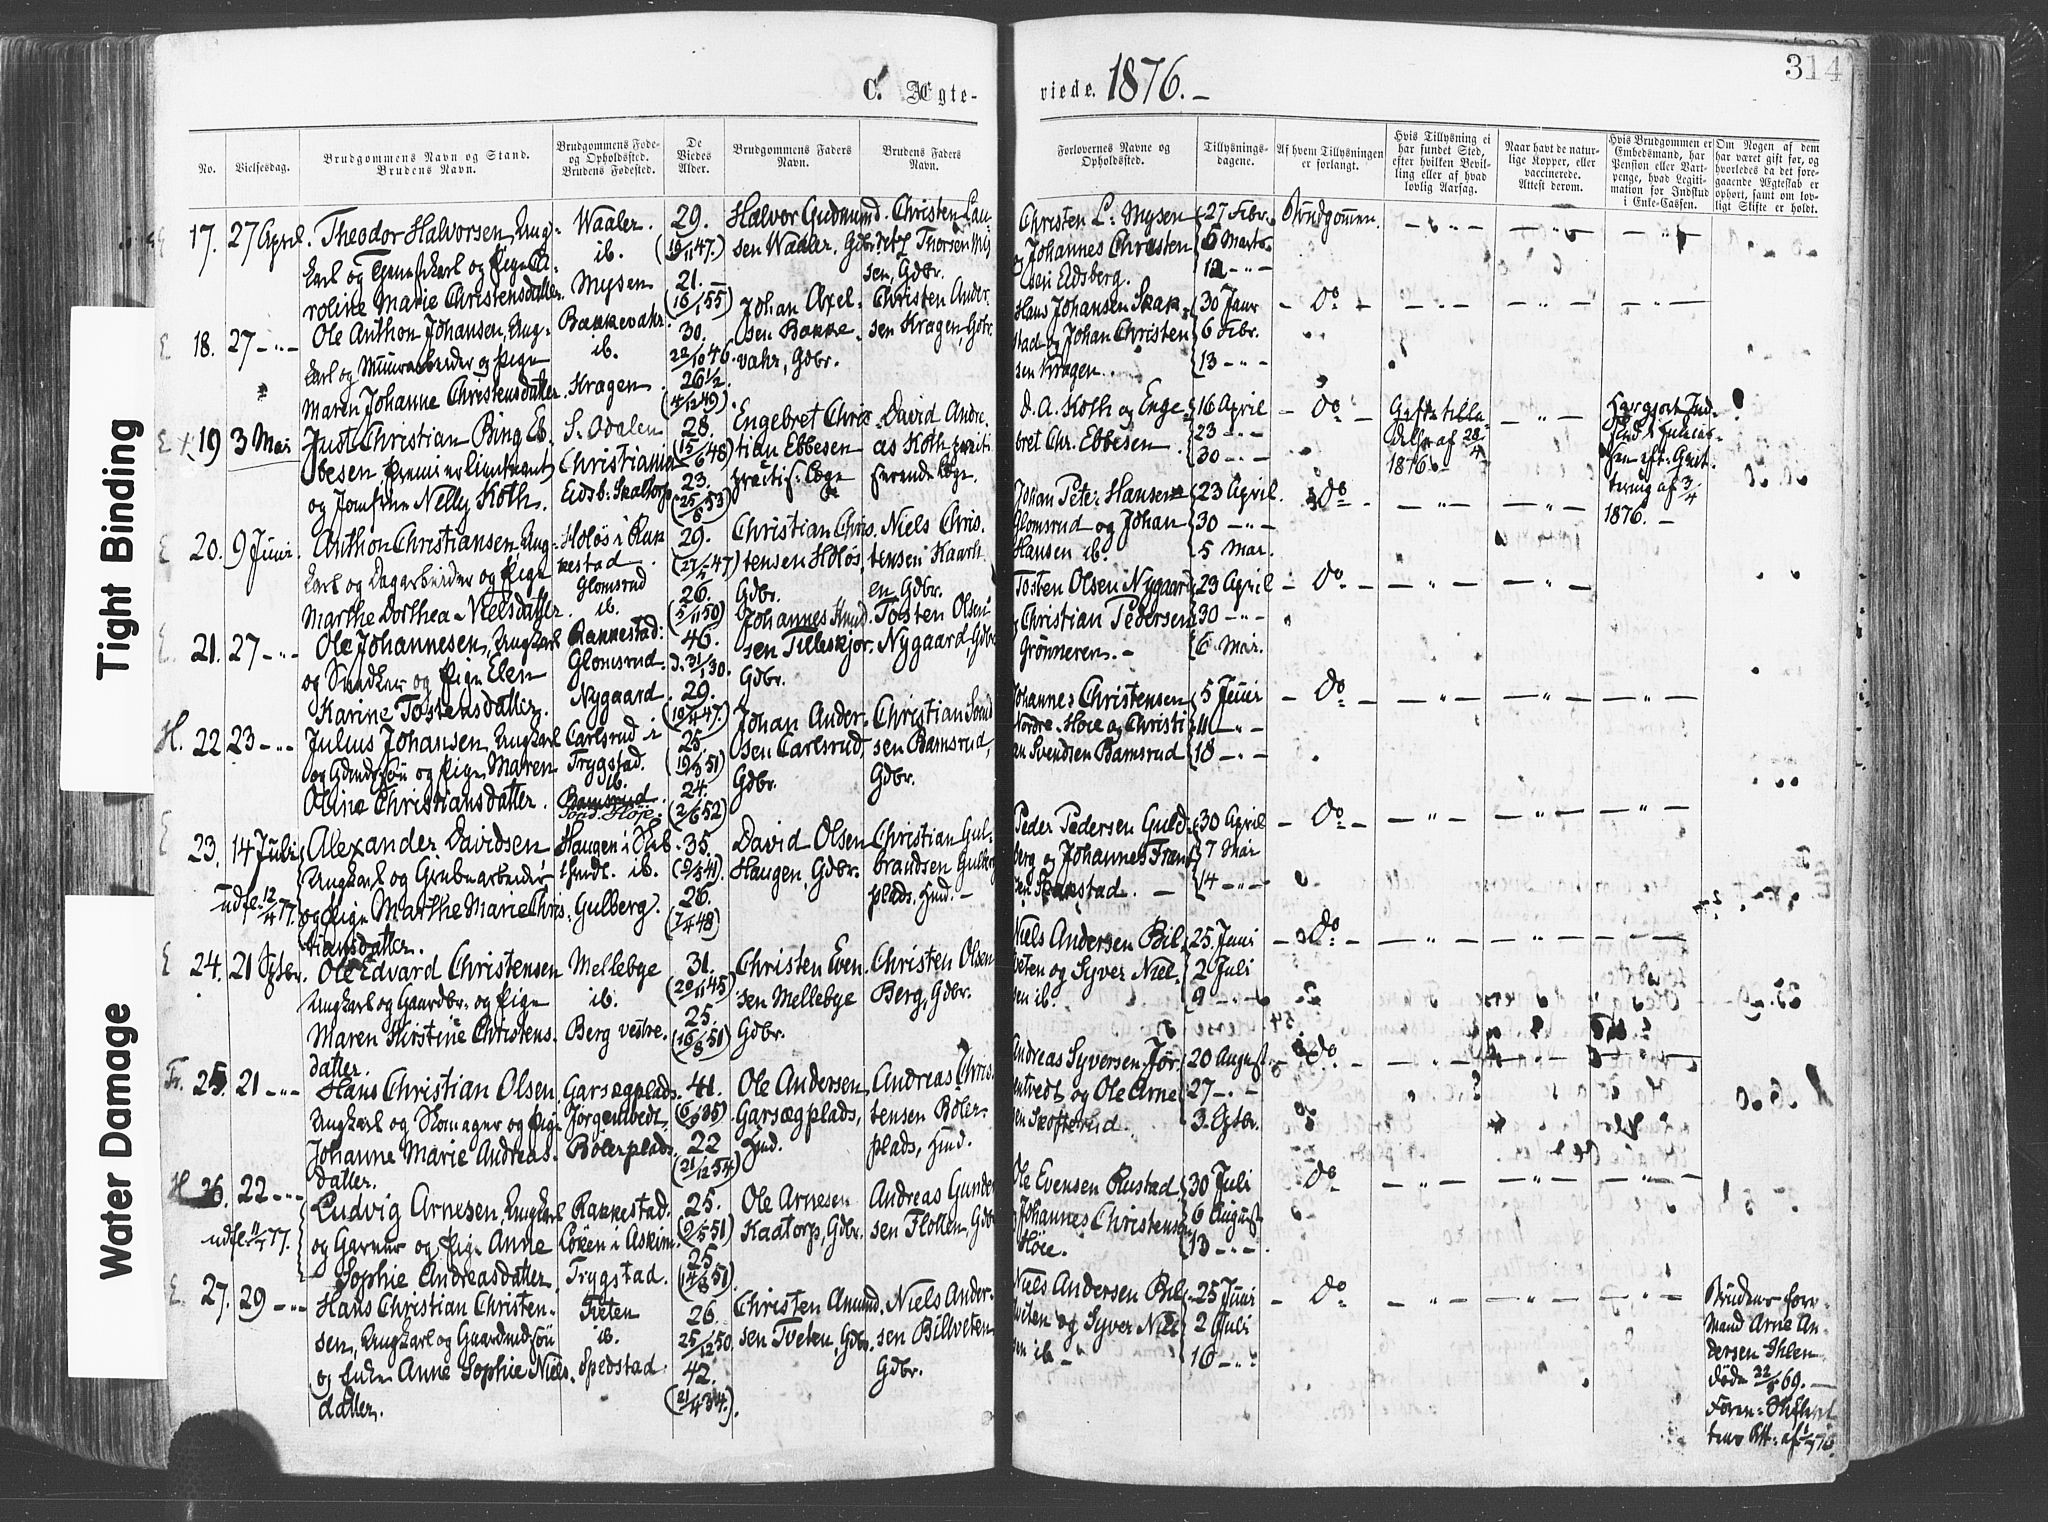 C. Ægte-
viede. 1876. —
314
No.
Vielsesdag.
Brudgommens Navn og Stand.
Brudens Navn.
Brudgommens Føde-
og Opholdssted.
Brudens Fødested.
De
Viedes
Alder.
Brudgommens Faders
Navn.
Brudens Faders
Navn.
Forlovernes Navne og
Opholdssted.
Tillysnings-
dagene.
Af hvem Tillysningen
er forlangt.
Hvis Tillysning ei
har fundet Sted,
efter hvilken Bevil-
ling eller af hvad
lovlig Aarsag.
Naar havt de natur-
lige Kopper, eller
vaccinerede.
Attest derom.
Hvis Brudgommen er
Embedsmand, har
Pension eller Vart-
penge, hvad Legiti-
mation for Indskud
i Enke-Cassen.
Om Nogen af dem
har været gift før, og
hvorledes da det fore-
gaaende Ægteskab er
ophørt, samt om lov-
ligt Skifte er holdt.
Tight Binding
Water Damage
17. 27 April. Theodor Halvorsen, Ung-
karl og Tjenestkarl og Pige Ca-
roline Marie Christensdatter.
Waaler.
ib.
Mysen
29.
(19/11 47.)
21.
(16/1 55)
Halvor Gudmund-
sen Waaler, Gdbr.
Christen Lau-
ritz Thorsen My-
sen, Gdbr.
Christen L: Mysen
og Johannes Christen
sen Eidsberg.
27 Febr.
5 Marts
12 — " —
Brudgommen.
18. 27 — " —
Ole Anthon Johansen, Ung-
karl og Muurarbeider og Pige
Maren Johanne Christensdatter.
Bakkevahr.
ib.
Kragen.
30.
22/10 46.
26 1/2.
(4/12 49)
Johan Axel-
sen Bakke-
vahr, Gdbr.
Christen Ander-
sen Kragen, Gdbr.
Hans Johansen Skak-
stad og Johan Christen
sen Kragen.
30 Janr
6 Febr.
13 — " —
— Do —
19 3 Mai
Just Christian Bing Eb-
besen, Premierlieutenant
og Jomfrue Nelly Koth.
S. Odalen
Christiania
Eidsb: Skaltorp
28.
(15/6 48)
23.
(25/8 53)
Engebret Chris-
tian Ebbesen
practis: Læge
David Andre-
as Koth, practi-
serende Læge.
D. A. Koth og Enge-
bret Chr. Ebbesen
16 April
23 — " —
30 — " —
— Do —
1876. —
1876. —
20. 9 Juni.
Anthon Christiansen, Ung-
karl og Dagarbeider og Pige
Marthe Dorthea Nielsdatter.
Holøs i Rak
kestad
Glomsrud
ib.
29.
26.
(5/11 50)
Christian Chris-
tensen Holøs,
Gdbr.
Niels Chris-
tensen Kaarh
en, Gdbr.
Johan Peter Hansen
Glomsrud og Johan
Hansen ib.
23 April.
30 — " —
5 Mai.
— Do —
21. 27 — " —
Ole Johannesen, Ungkarl
og Snedker og Pige Elen
Karine Tostensdatter.
Rakkestad:
Glomsrud.
Nygaard.
46.
29.
(19/4 47.)
Johannes Knud-
sen Tilleskjør.
Gdbr.
Tosten Olsen
Nygaard, Gdbr
Tosten Olsen Nygaard
og Christian Pedersen
Grønneren. —
23 April
30 — " —
6 Mai.
— Do —
22. 23 — " —
Julius Johansen, Ungkarl
og Gdmdssøn og Pige Maren
Oline Christiansdatter.
Carlsrud i
Trygstad.
ib.
Bamsrud
Sønd. Høje.
25.
(19/3 51)
24.
(2/6 52)
Johan Ander-
sen Carlsrud,
Gdbr.
Christian Svend
sen Bamsrud,
Gdbr.
Johannes Christensen
Nordre-Høie og Christi
an Svendsen Bamsrud
5 Juni
11 — " —
18 — " —
— Do —
23. 14 Juli
Udfl. 12/4 77.
Alexander Davidsen
Ungkarl og Grubearbeider
og Pige Marthe Marie Chris-
tiansdatter.
Haugen i Sku
thudl. ib.
Gulberg.
35.
26.
(7/4 48)
David Olsen
Haugen, Gdbr.
Christian Gul-
brandsen Gulberg
plads. Hmd. —
Peder Pedersen Guld-
berg og Johannes Frant
sen Skakstad. —
30 April
7 Mai
14 — " —
— Do —
24. 21 Sptbr.
Ole Edvard Christensen
Ungkarl og Gaardbr. og Pige
Maren Kirstine Christens-
datter.
Mellebye
ib.
Berg vestre.
31.
(20/11 45)
25.
(16/8 51)
Christen Even-
sen Mellebye
Gdbr.
Christen Olsen
Berg, Gdbr.
Niels Andersen Bil-
veten og Syver Niel-
sen ib.
25. Juni
2 Juli
9 — " —
— Do —
25 21 — " —
Hans Christian Olsen
Ungkarl og Skomager og Pige
Johanne Marie Andreas-
datter.
Garsægplads.
Jørgentvedt.
Bølerplads.
41.
22
(21/12 54)
Ole Andersen
Garsægplads,
Hmd.
Andreas Chris-
tensen Bøler-
plads, Hmd.
Andreas Syversen Jør-
gentvedt og Ole Arne
sen Skofterud.
20 August
27 — " —
3. Sptbr.
— Do —
26. 22 — " —
udfl. 11/1 77.
Ludvig Arnesen, Ungkarl
og Garver og Pige Anne
Sophie Andreasdatter
Rakkestad.
Løken i Askim.
Trygstad.
25.
(2/5 51)
25
(14/8 51)
Ole Arnesen
Kaatorp, Gdbr.
Andreas Gunder
sen Floten, Gdbr
Ole Evensen Rustad
og Johannes Christensen
Høie.
30 Juli
6 August
13 — " —
Do —
27. 29 — " —
Hans Christian Christen-
sen, Ungkarl og Gaardmdssøn
og Enke Anne Sophie Niels-
datter.
Tveten
ib.
Spedstad.
26.
25/12 50.
42.
(21/4 34.)
Christen Amund-
sen Tveten, Gdbr.
Niels Ander-
sen Billveten
Gdbr.
Niels Andersen Bil-
veten og Syver Niel
sen ib —
25 Juni
2 Juli
16 — " —
— Do —
Brudens for-
Mand Arne An-
dersen Ihlen
døde 22/8 69. —